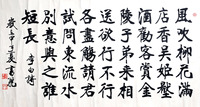 風吹柳花滿
店香吳姬壓
酒勸客嘗金
陵子弟來相
送欲行不行
各盡觴請君
試問東流水
別意與之誰
短長
李白詩